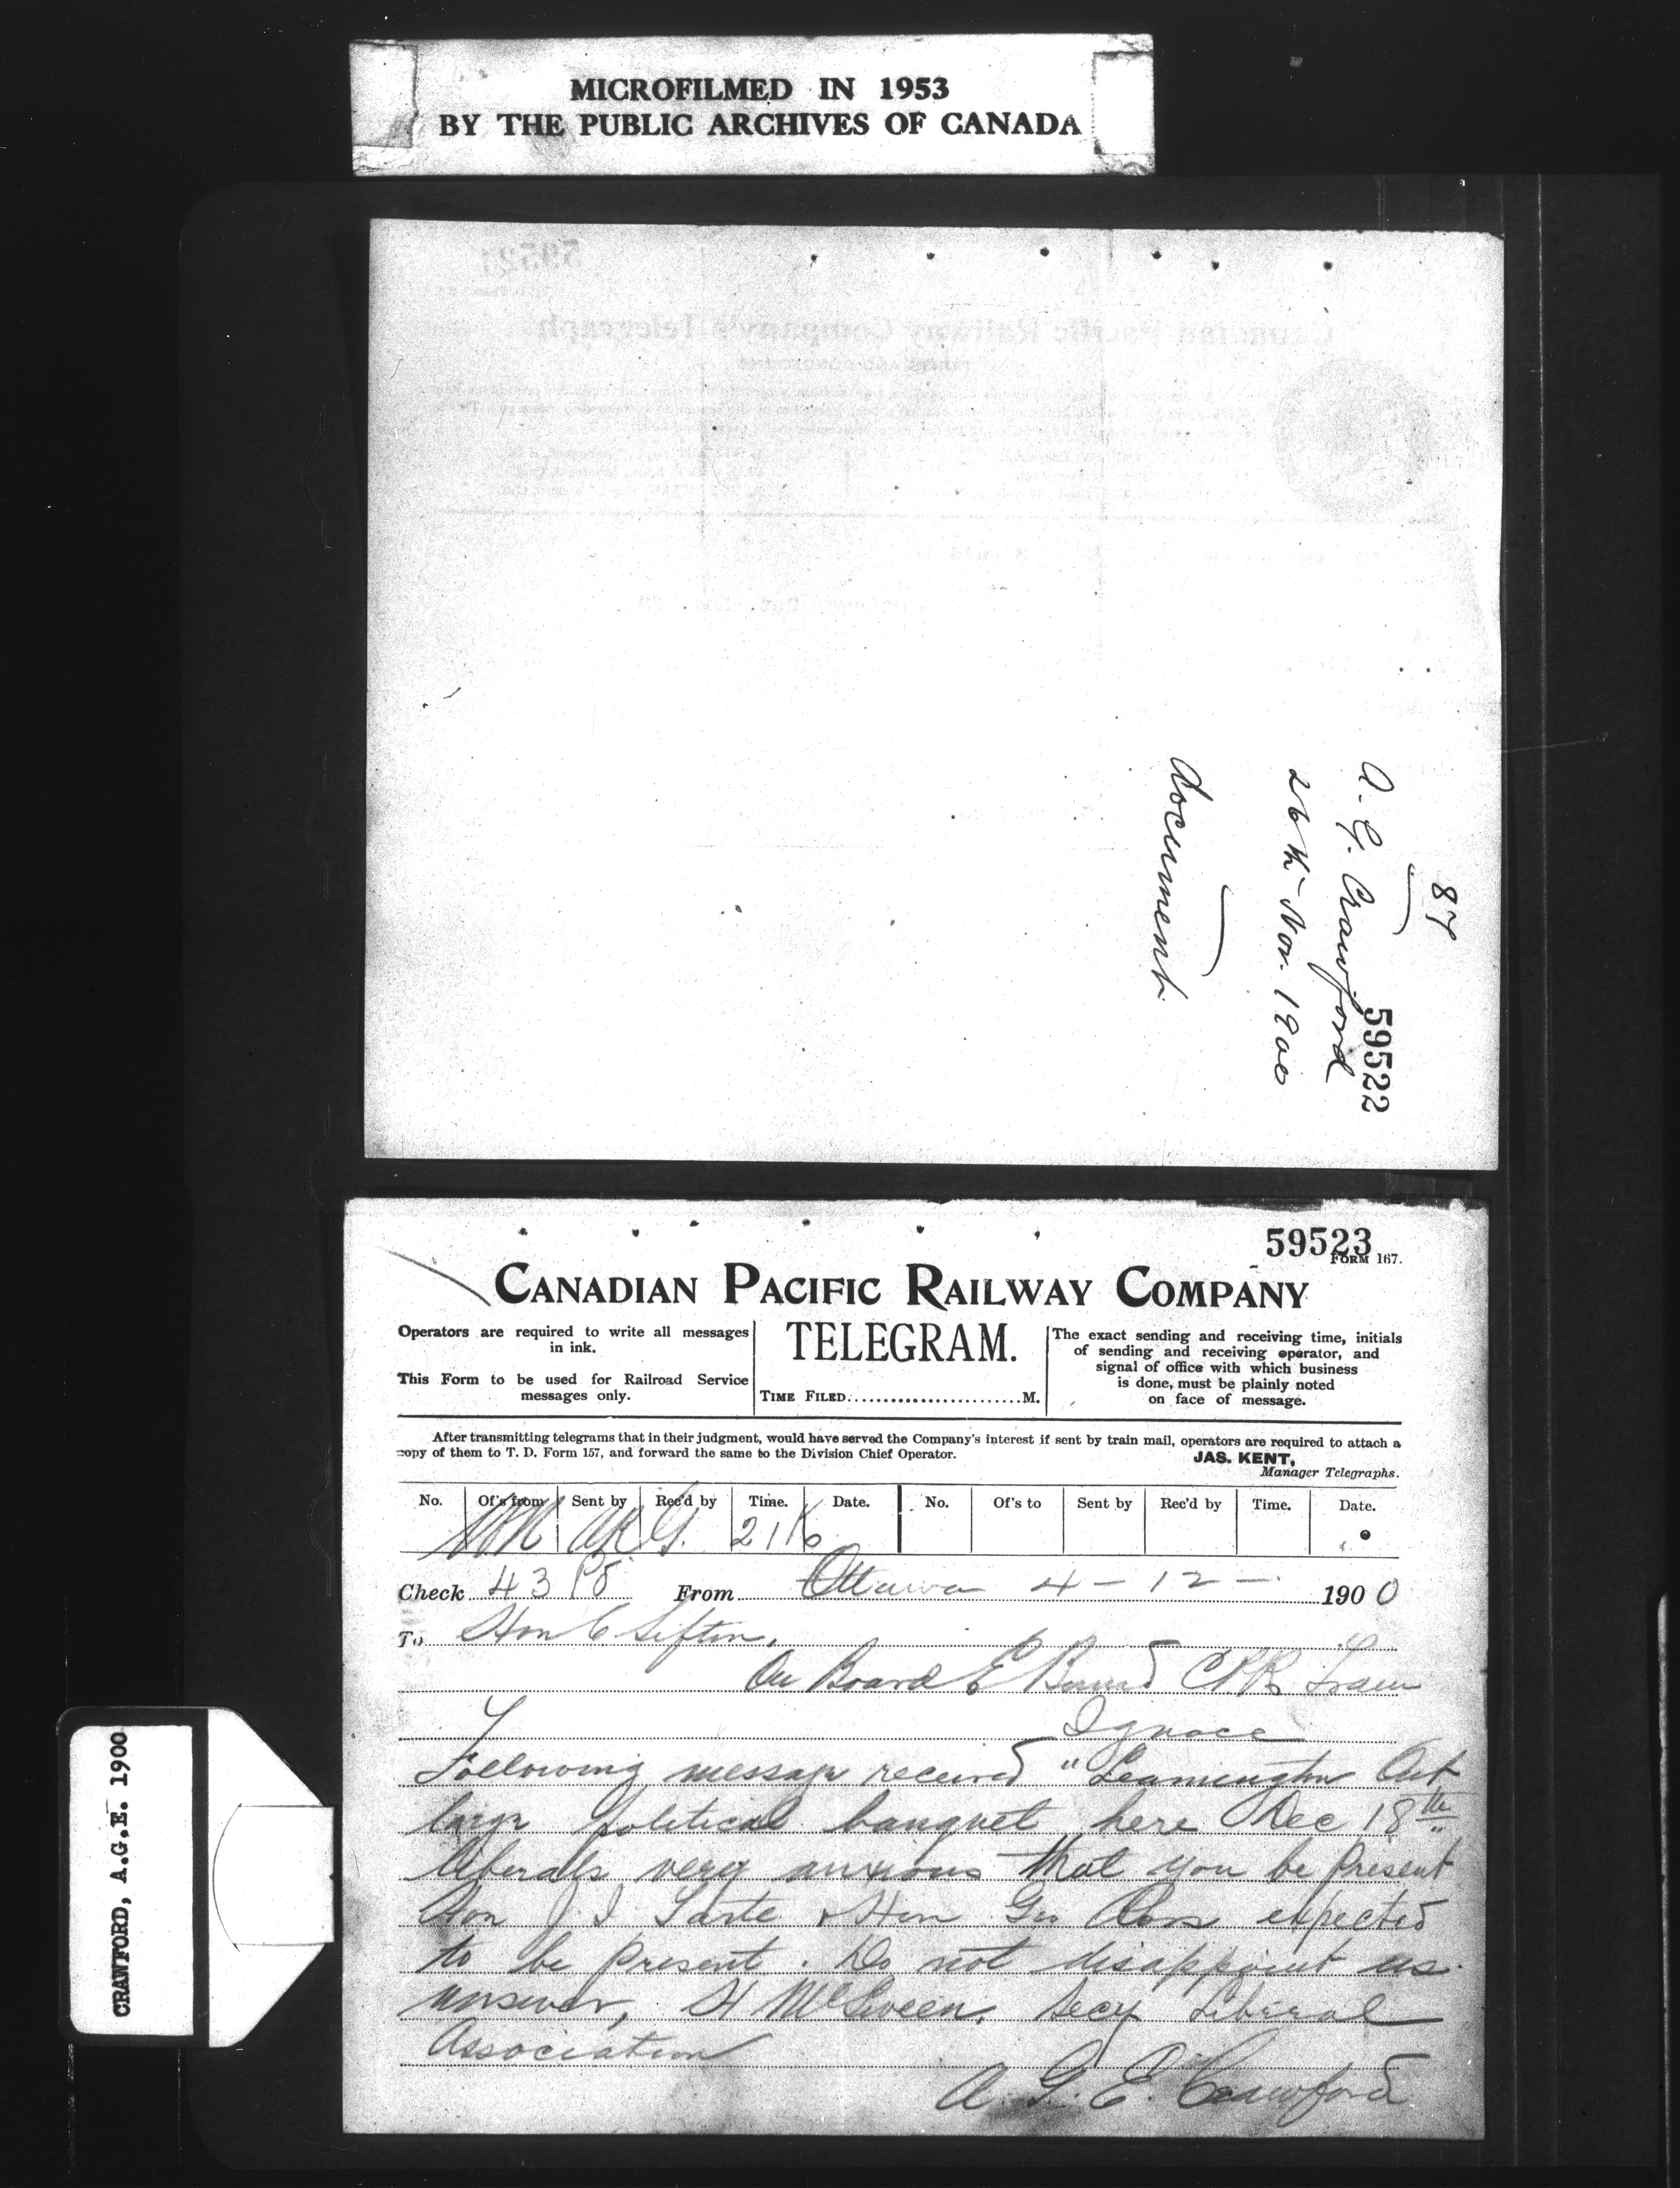 MICROFILMED IN 1953
BY THE PUBLIC ARCHIVES OF CANADA
87
59522
A. G. Crawford
26th Nov. 1900
document
59523
FORM 167.
CANADIAN PACIFIC RAILWAY COMPANY
TELEGRAM.
Operators are required to write all messages
in ink.
This Form to be used for Railroad Service
messages only.
TIME FILED........................M.
The exact sending and receiving time, initials
of sending and receiving operator, and
signal of office with which business
is done, must be plainly noted
on face of message.
After transmitting telegrams that in their judgment, would have served the Company's interest if sent by train mail, operators are required to attach a
copy of them to T. D. Form 157, and forward the same to the Division Chief Operator.
JAS. KENT,
Manager Telegraphs.
No. Of's from Sent by Rec'd by Time. Date. No. Of's to Sent by Rec'd by Time. Date.
Check 43 From Ottawa 4-12- 1900
To Hon C Sifton,
On Board E Bound CPR Train
Ignace
Following message received "Leamington Ont
large political banquet here Dec 18th
liberals very anxious that you be present
Hon J I Tarte & Hon Geo Ross expected
to be present. Do not disappoint us.
answer, H McSween, Secy Liberal
Association
A. G. E. Crawford
CRAWFORD, A.G.E. 1900